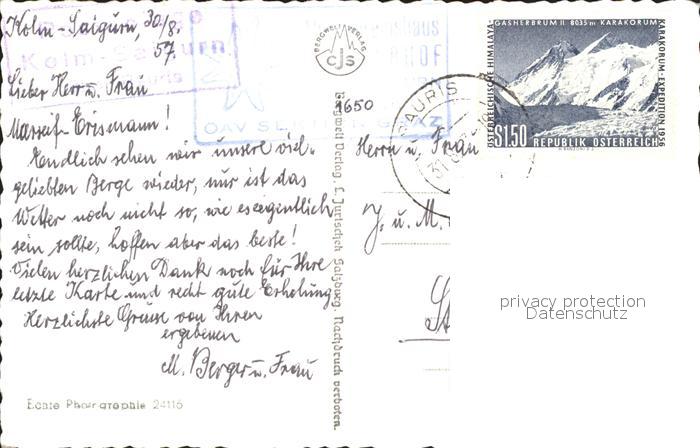 Kolm-Saigurn, 30/8.
57.
Kolm-Saigurn
Lieber Herr u. Frau
Erismann!
Endlich sehen wir unsere viel-
geliebten Berge wieder, nur ist das
Wetter noch nicht so, wie es eigentlich
sein sollte, hoffen aber das beste!
Vielen herzlichen Dank noch für Ihre
letzte Karte und recht gute Erholung
Herzlichste Grüsse von Ihren
ergebenen
M. Berger u. Frau
Echte Photographie 24116
BERGWELT VERLAG
CJS
Bergwelt Verlag, C. Jurischek Salzburg Nachdruck verboten.
1650
ÖAV SEKTION GRAZ
RAURIS
31
GASHERBRUM II 8035m KARAKORUM
ÖSTERREICHISCHE HIMALAYA-
KARAKORUM-EXPEDITION 1956
S1.50 REPUBLIK ÖSTERREICH
Herrn u. Frau
J. u. M.
St
privacy protection
Datenschutz